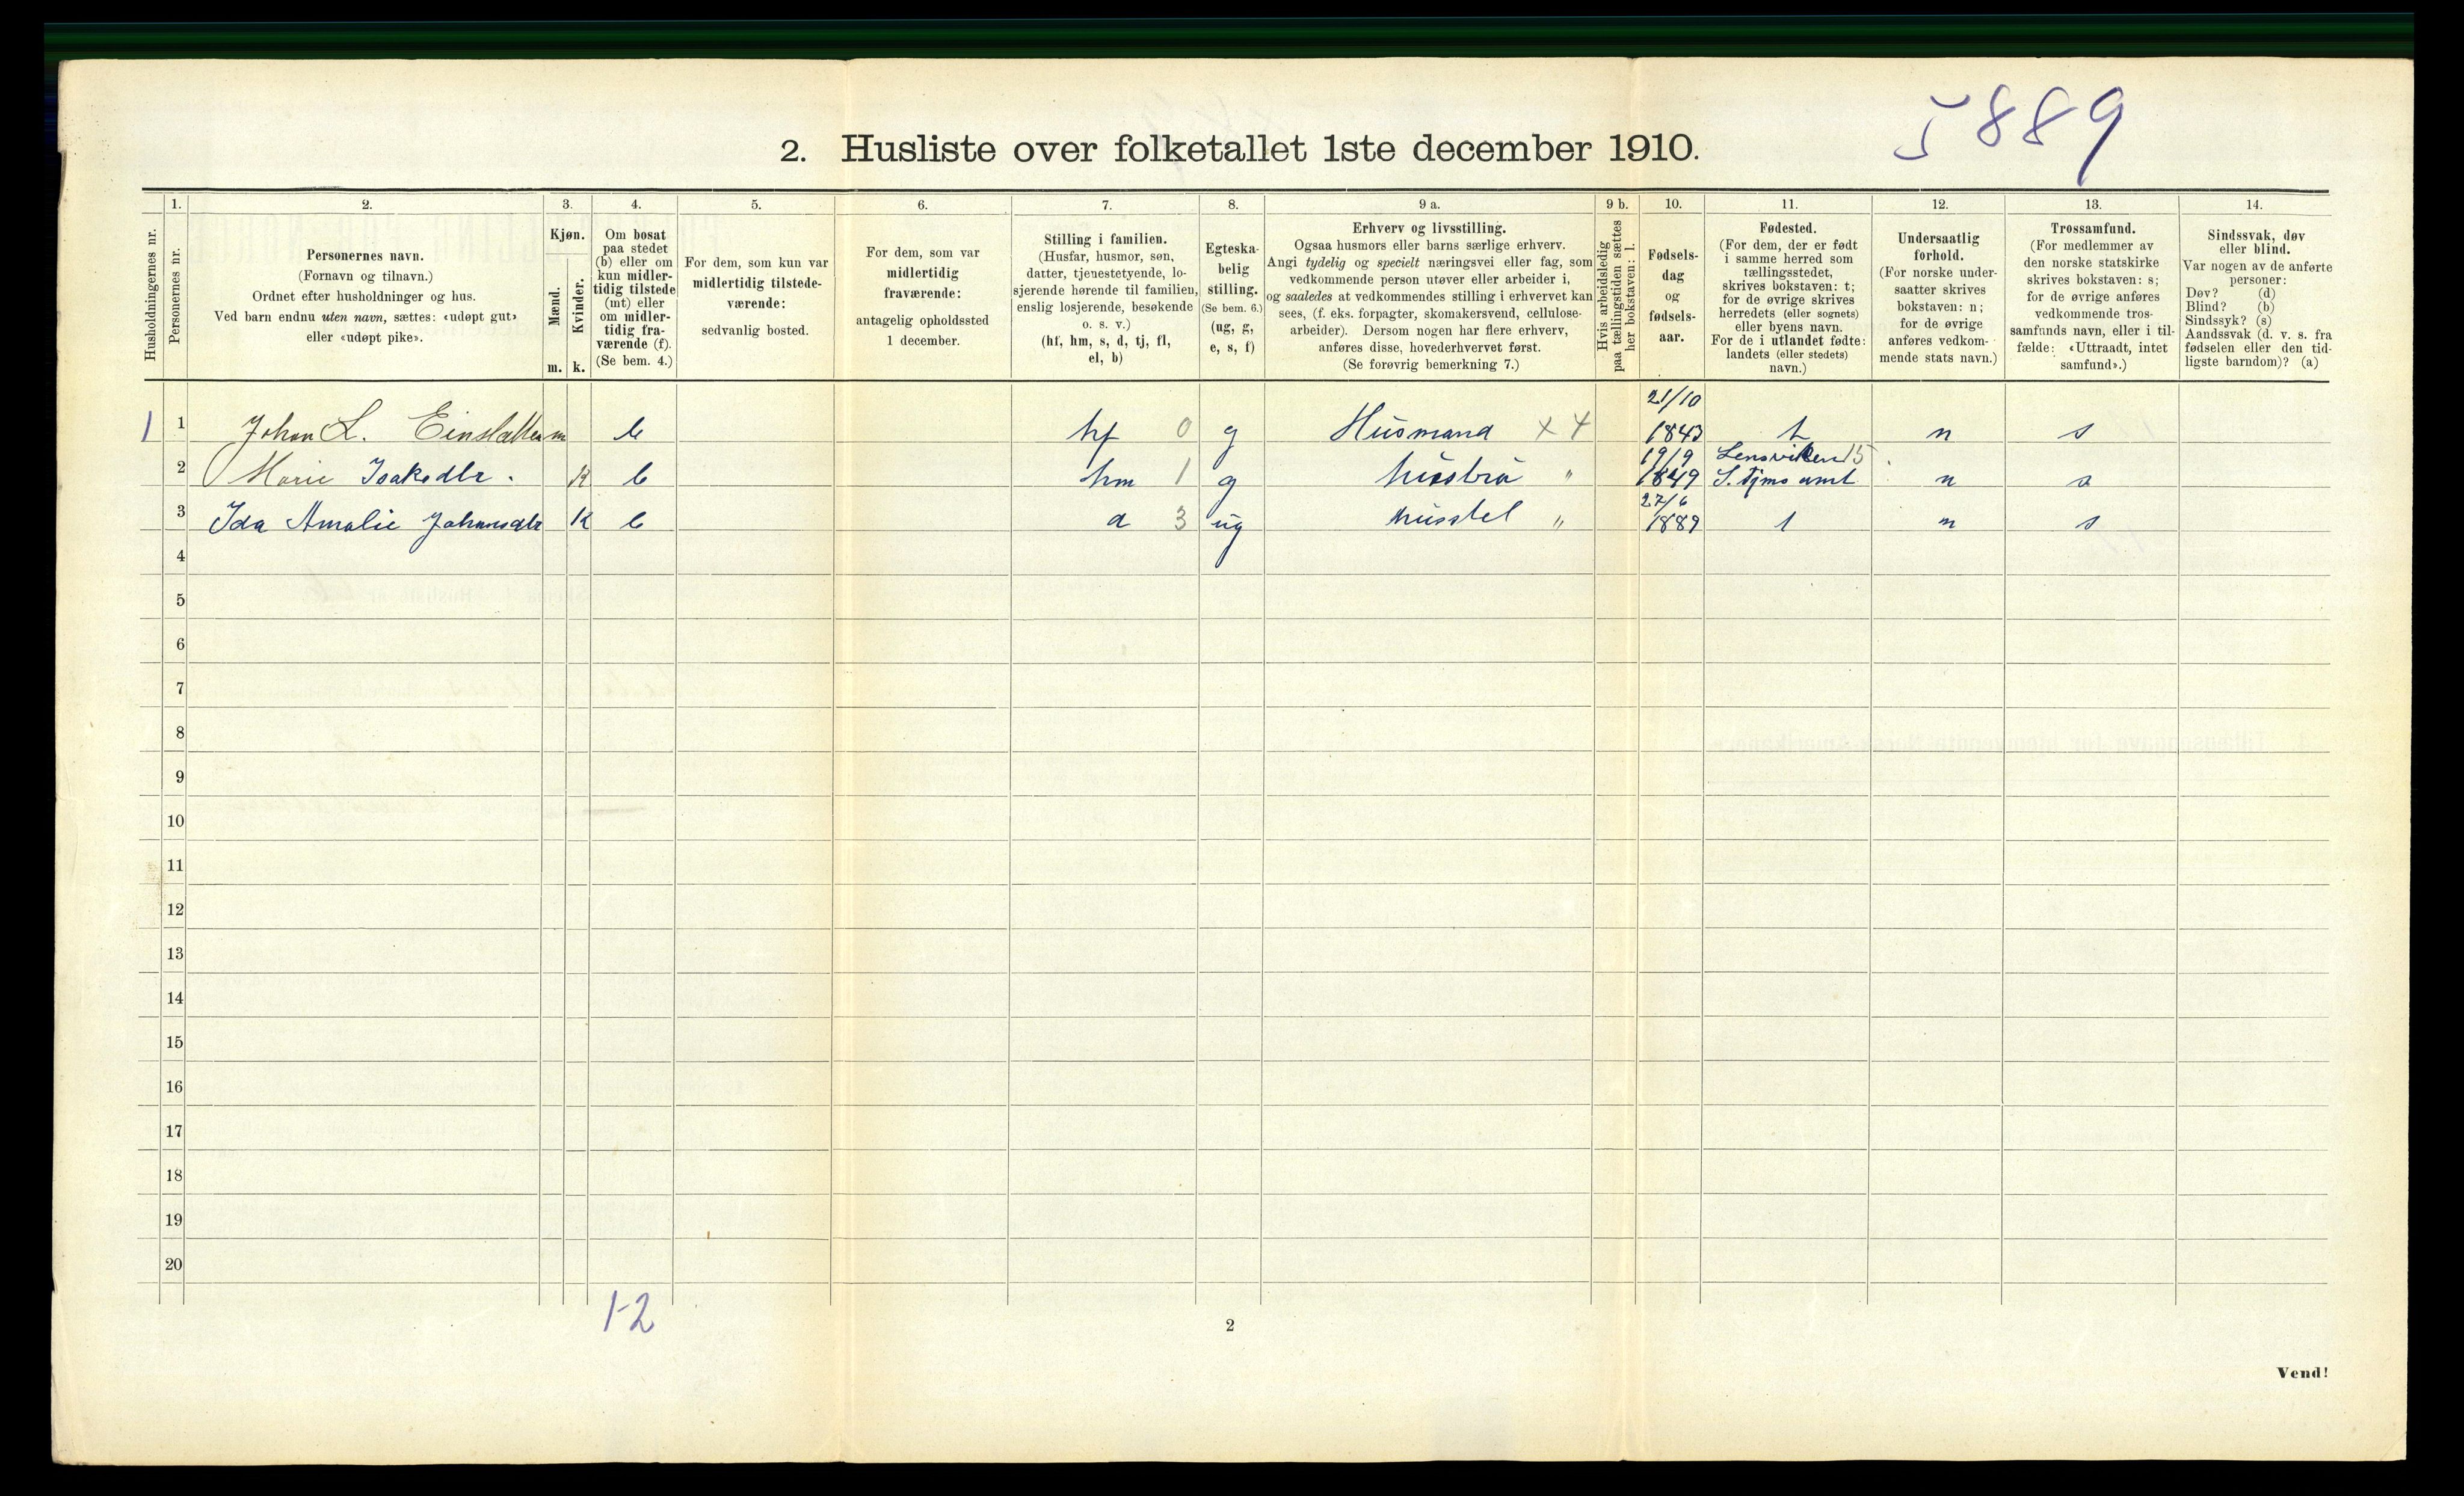 5889
2. Husliste over folketallet 1ste december 1910.
Husholdningernes nr.
1.
Personernes nr.
2.
Personernes navn.
(Fornavn og tilnavn.)
Ordnet efter husholdninger og hus.
Ved barn endnu uten navn, sættes: «udøpt gut»
eller «udøpt pike».
3.
Kjøn.
Mænd.
Kvinder.
m. k.
4.
Om bosat
paa stedet
(b) eller om
kun midler-
tidig tilstede
(mt) eller
om midler-
tidig fra-
værende (f).
(Se bem. 4.)
5.
For dem, som kun var
midlertidig tilstede-
værende:
sedvanlig bosted.
6.
For dem, som var
midlertidig
fraværende:
antagelig opholdssted
1 december.
7.
Stilling i familien.
(Husfar, husmor, søn,
datter, tjenestetyende, lo-
sjerende hørende til familien,
enslig losjerende, besøkende
o. s. v.)
(hf, hm, s, d, tj, fl,
el, b)
8.
Egteska-
belig
stilling.
(Se bem. 6.)
(ug, g,
e, s, f)
9 a.
Erhverv og livsstilling.
Ogsaa husmors eller barns særlige erhverv.
Angi tydelig og specielt næringsvei eller fag, som
vedkommende person utøver eller arbeider i,
og saaledes at vedkommendes stilling i erhvervet kan
sees, (f. eks. forpagter, skomakersvend, cellulose-
arbeider). Dersom nogen har flere erhverv,
anføres disse, hovederhvervet først.
(Se forøvrig bemerkning 7.)
9 b.
Hvis arbeidsledig
paa tællingstiden sættes
her bokstaven: l.
10.
Fødsels-
dag
og
fødsels-
aar.
11.
Fødested.
(For dem, der er født
i samme herred som
tællingsstedet,
skrives bokstaven: t;
for de øvrige skrives
herredets (eller sognets)
eller byens navn.
For de i utlandet fødte:
landets (eller stedets)
navn.)
12.
Undersaatlig
forhold.
(For norske under-
saatter skrives
bokstaven: n;
for de øvrige
anføres vedkom-
mende stats navn.)
13.
Trossamfund.
(For medlemmer av
den norske statskirke
skrives bokstaven: s;
for de øvrige anføres
vedkommende tros-
samfunds navn, eller i til-
fælde: «Uttraadt, intet
samfund».)
14.
Sindssvak, døv
eller blind.
Var nogen av de anførte
personer:
Døv? (d)
Blind? (b)
Sindssyk? (s)
Aandssvak (d. v. s. fra
fødselen eller den tid-
ligste barndom)? (a)
1 1 Johan L. m b hf 0 g Husmand x 4 21/10 1843 t n s
2 Marie Isaksdtr. K b hm 1 g husbrū " 19/9 1849 Lensviken 15 n s
3 Ida Amalie Johansdtr K b d 3 ug husstel " 27/6 1889 t n s
4
5
6
7
8
9
10
11
12
13
14
15
16
17
18
19
20
1-2
2
Vend!